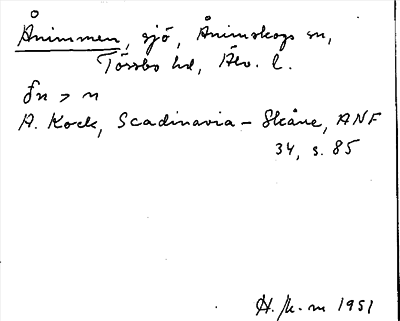 Ånimmen, sjö, Ånimskogs sn,
Tössbo hd, Älv. l.
ðn > n
A. Kock, Scadinavia – Skåne, ANF
34, s. 85
1951